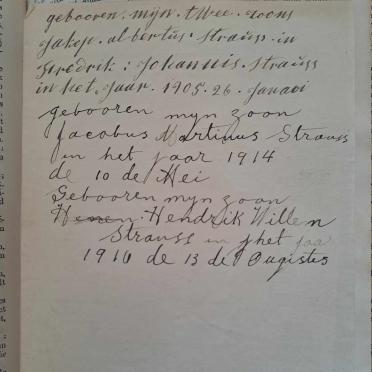 gebooren. mijn. twee. zoons
Jakop. albertus. Strauss. in
Fredrik: Johannis. Strauss
in het. Jaar. 1905. 26. Januari
gebooren mijn zoon
Jacobus Martinus Strauss
in het jaar 1914
de 10 de Mei
Gebooren mijn zoon
Hendrik Willem
Strauss in het jaa
1916 de 13 de Augistus